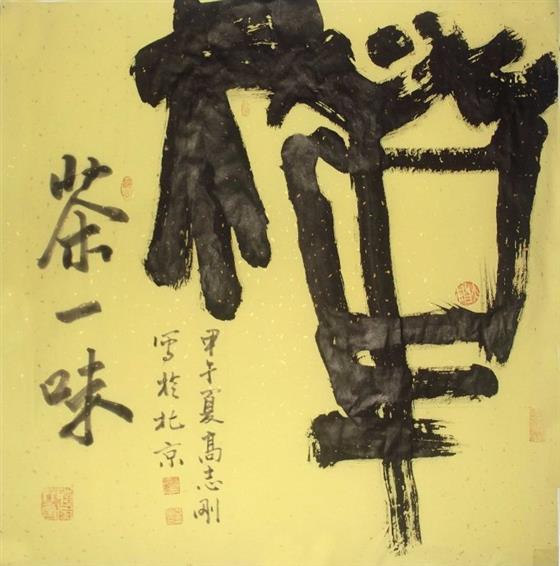 禅
茶一味
甲午夏高志刚
写於北京